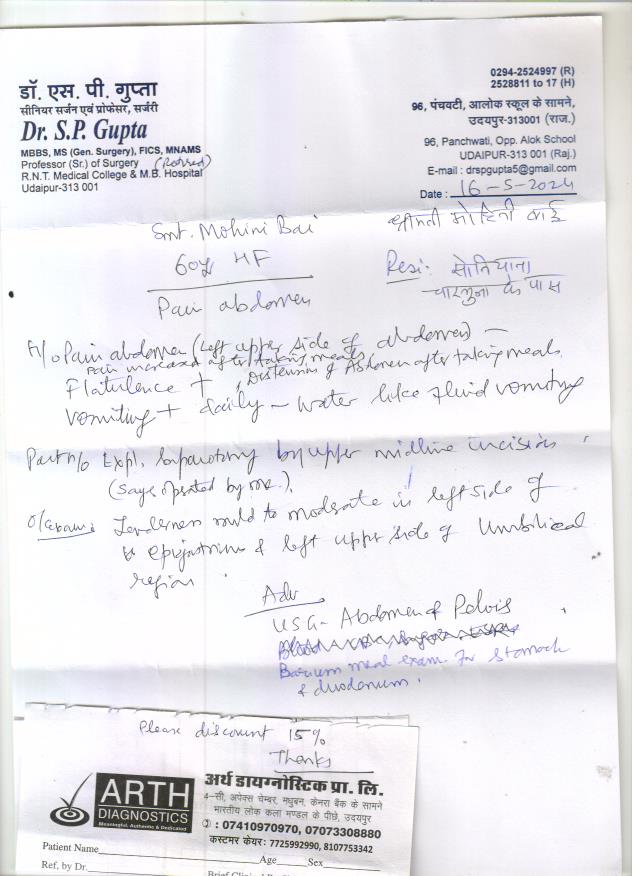 डॉ. एस. पी. गुप्ता
सीनियर सर्जन एवं प्रोफेसर, सर्जरी
Dr. S.P. Gupta
MBBS, MS (Gen. Surgery), FICS, MNAMS
Professor (Sr.) of Surgery (Retired)
R.N.T. Medical College & M.B. Hospital
Udaipur-313 001
0294-2524997 (R)
2528811 to 17 (H)
96, पंचवटी, आलोक स्कूल के सामने,
उदयपुर-313001 (राज.)
96, Panchwati, Opp. Alok School
UDAIPUR-313 001 (Raj.)
E-mail : drspgupta5@gmail.com
Date : 16-5-2024
Smt. Mohini Bai
श्रीमती मोहिनी बाई
60y HF
Resi: सोनियाना
चारभुजा के पास
Pain abdomen
H/o Pain abdomen (Left upper side of abdomen) —
Pain increased after taking meals
Flatulence + , Distension of Abdomen after taking meals.
Vomiting + daily - Water like fluid vomiting
Past h/o Expl. laparotomy by upper midline incision
(Says operated by me).
O/Exam: Tenderness mild to moderate in left side of
epigastrium & left upper side of Umbilical
region.
Adv
USG - Abdomen & Pelvis
Barium meal exam. for stomach
& duodenum.
Please discount 15%
Thanks
ARTH
DIAGNOSTICS
Meaningful, Authentic & Dedicated
अर्थ डायग्नोस्टिक प्रा. लि.
4-सी, अपेक्स चेम्बर, मधुबन, केनरा बैंक के सामने
भारतीय लोक कला मण्डल के पीछे, उदयपुर
: 07410970970, 07073308880
कस्टमर केयर: 7725992990, 8107753342
Patient Name
Age Sex
Ref, by Dr.